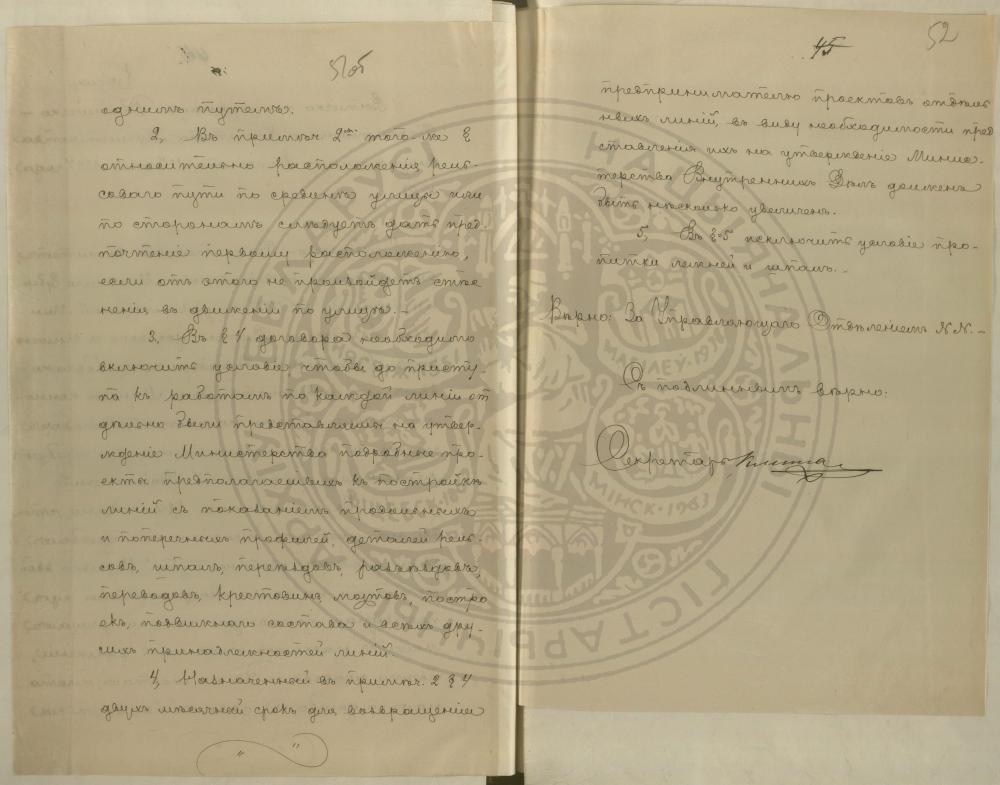 51об
однимъ путемъ.
2, Въ примѣч 2мъ того-же §
относительно расположенія рель-
соваго пути по срединѣ улицы или
по сторонамъ слѣдуетъ дать пред-
почтеніе первому расположенію,
если отъ этого не произойдетъ стѣс
ненія въ движеніи по улицѣ. –
3, Въ § 4 договора необходимо
включить условіе чтобы до присту-
па къ работамъ по каждой линіи от
дѣльно были представляемы на утвер-
жденіе Министерства подробные про-
екты предполагаемыхъ къ постройкѣ
линій съ показаніемъ продольныхъ
и поперечныхъ профилей, деталей рель-
совъ, шпалъ, переѣздовъ, разъѣздовъ,
переводовъ, крестовинъ мостовъ, постро
екъ, подвижнаго состава и всѣхъ дру-
гихъ принадлежностей линій.
4, Назначенный въ примѣч. 2 § 4
двухъ мѣсячный срокъ для возвращенія
45
52
предпринимателю проектовъ отдѣль
ныхъ линій, въ виду необходимости пред
ставленія ихъ на утвержденіе Минис-
терства Внутреннихъ Дѣлъ долженъ
быть нѣсколько увеличенъ.
5, Въ § 5 исключить условіе про-
питки лежней и шпалъ. –
Вѣрно: За Управляющаго Отдѣленіемъ N.N. –
Съ подлиннымъ вѣрно:
Секретарь
НАЦЫЯНАЛЬНЫ ГІСТАРЫЧНЫ
МАГІЛЕЎ
МІНСК · 1963